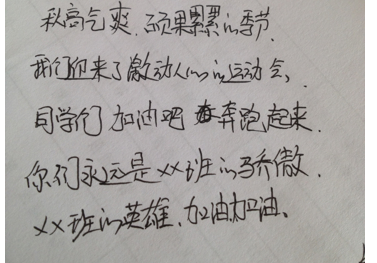 秋高气爽，硕果累累的季节，
我们迎来了激动人心的运动会，
同学们加油吧奔跑起来，
你们永远是XX班的骄傲，
XX班的英雄，加油加油。